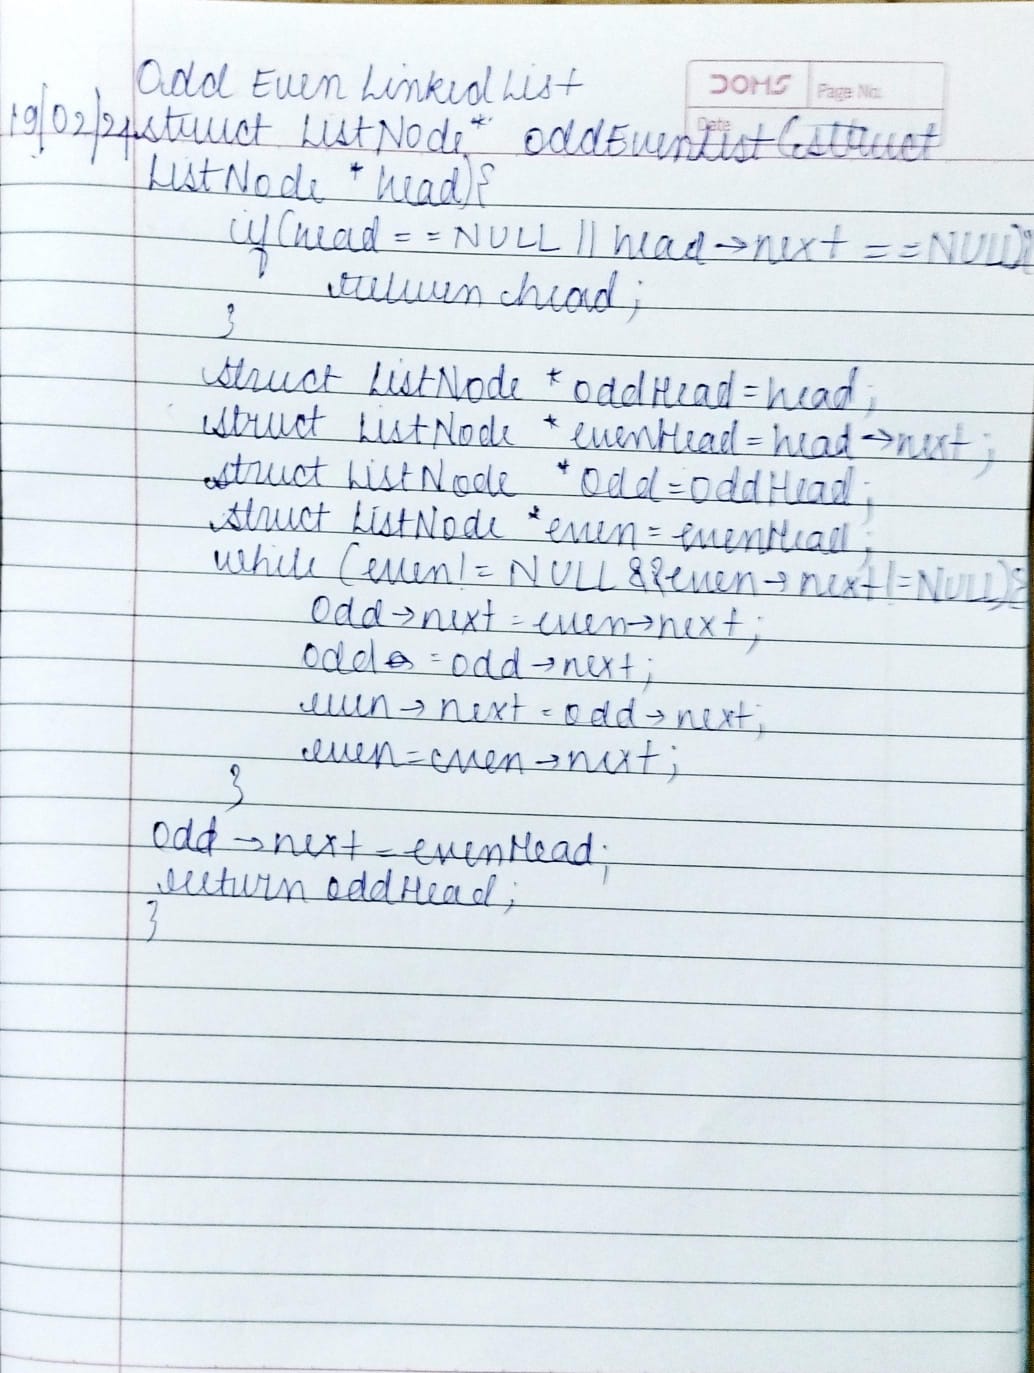 Odd Even Linked List
DOMS Page No.
Date
19/02/24 struct ListNode* oddEvenList(struct
ListNode *head){
if(head==NULL || head→next ==NULL){
return head;
}
struct ListNode *oddHead=head;
struct ListNode *evenHead=head→next;
struct ListNode *odd=oddHead;
struct ListNode *even=evenHead;
while(even!=NULL&&even→next!=NULL){
odd→next=even→next;
odd=odd→next;
even→next=odd→next;
even=even→next;
}
odd→next=evenHead;
return oddHead;
}